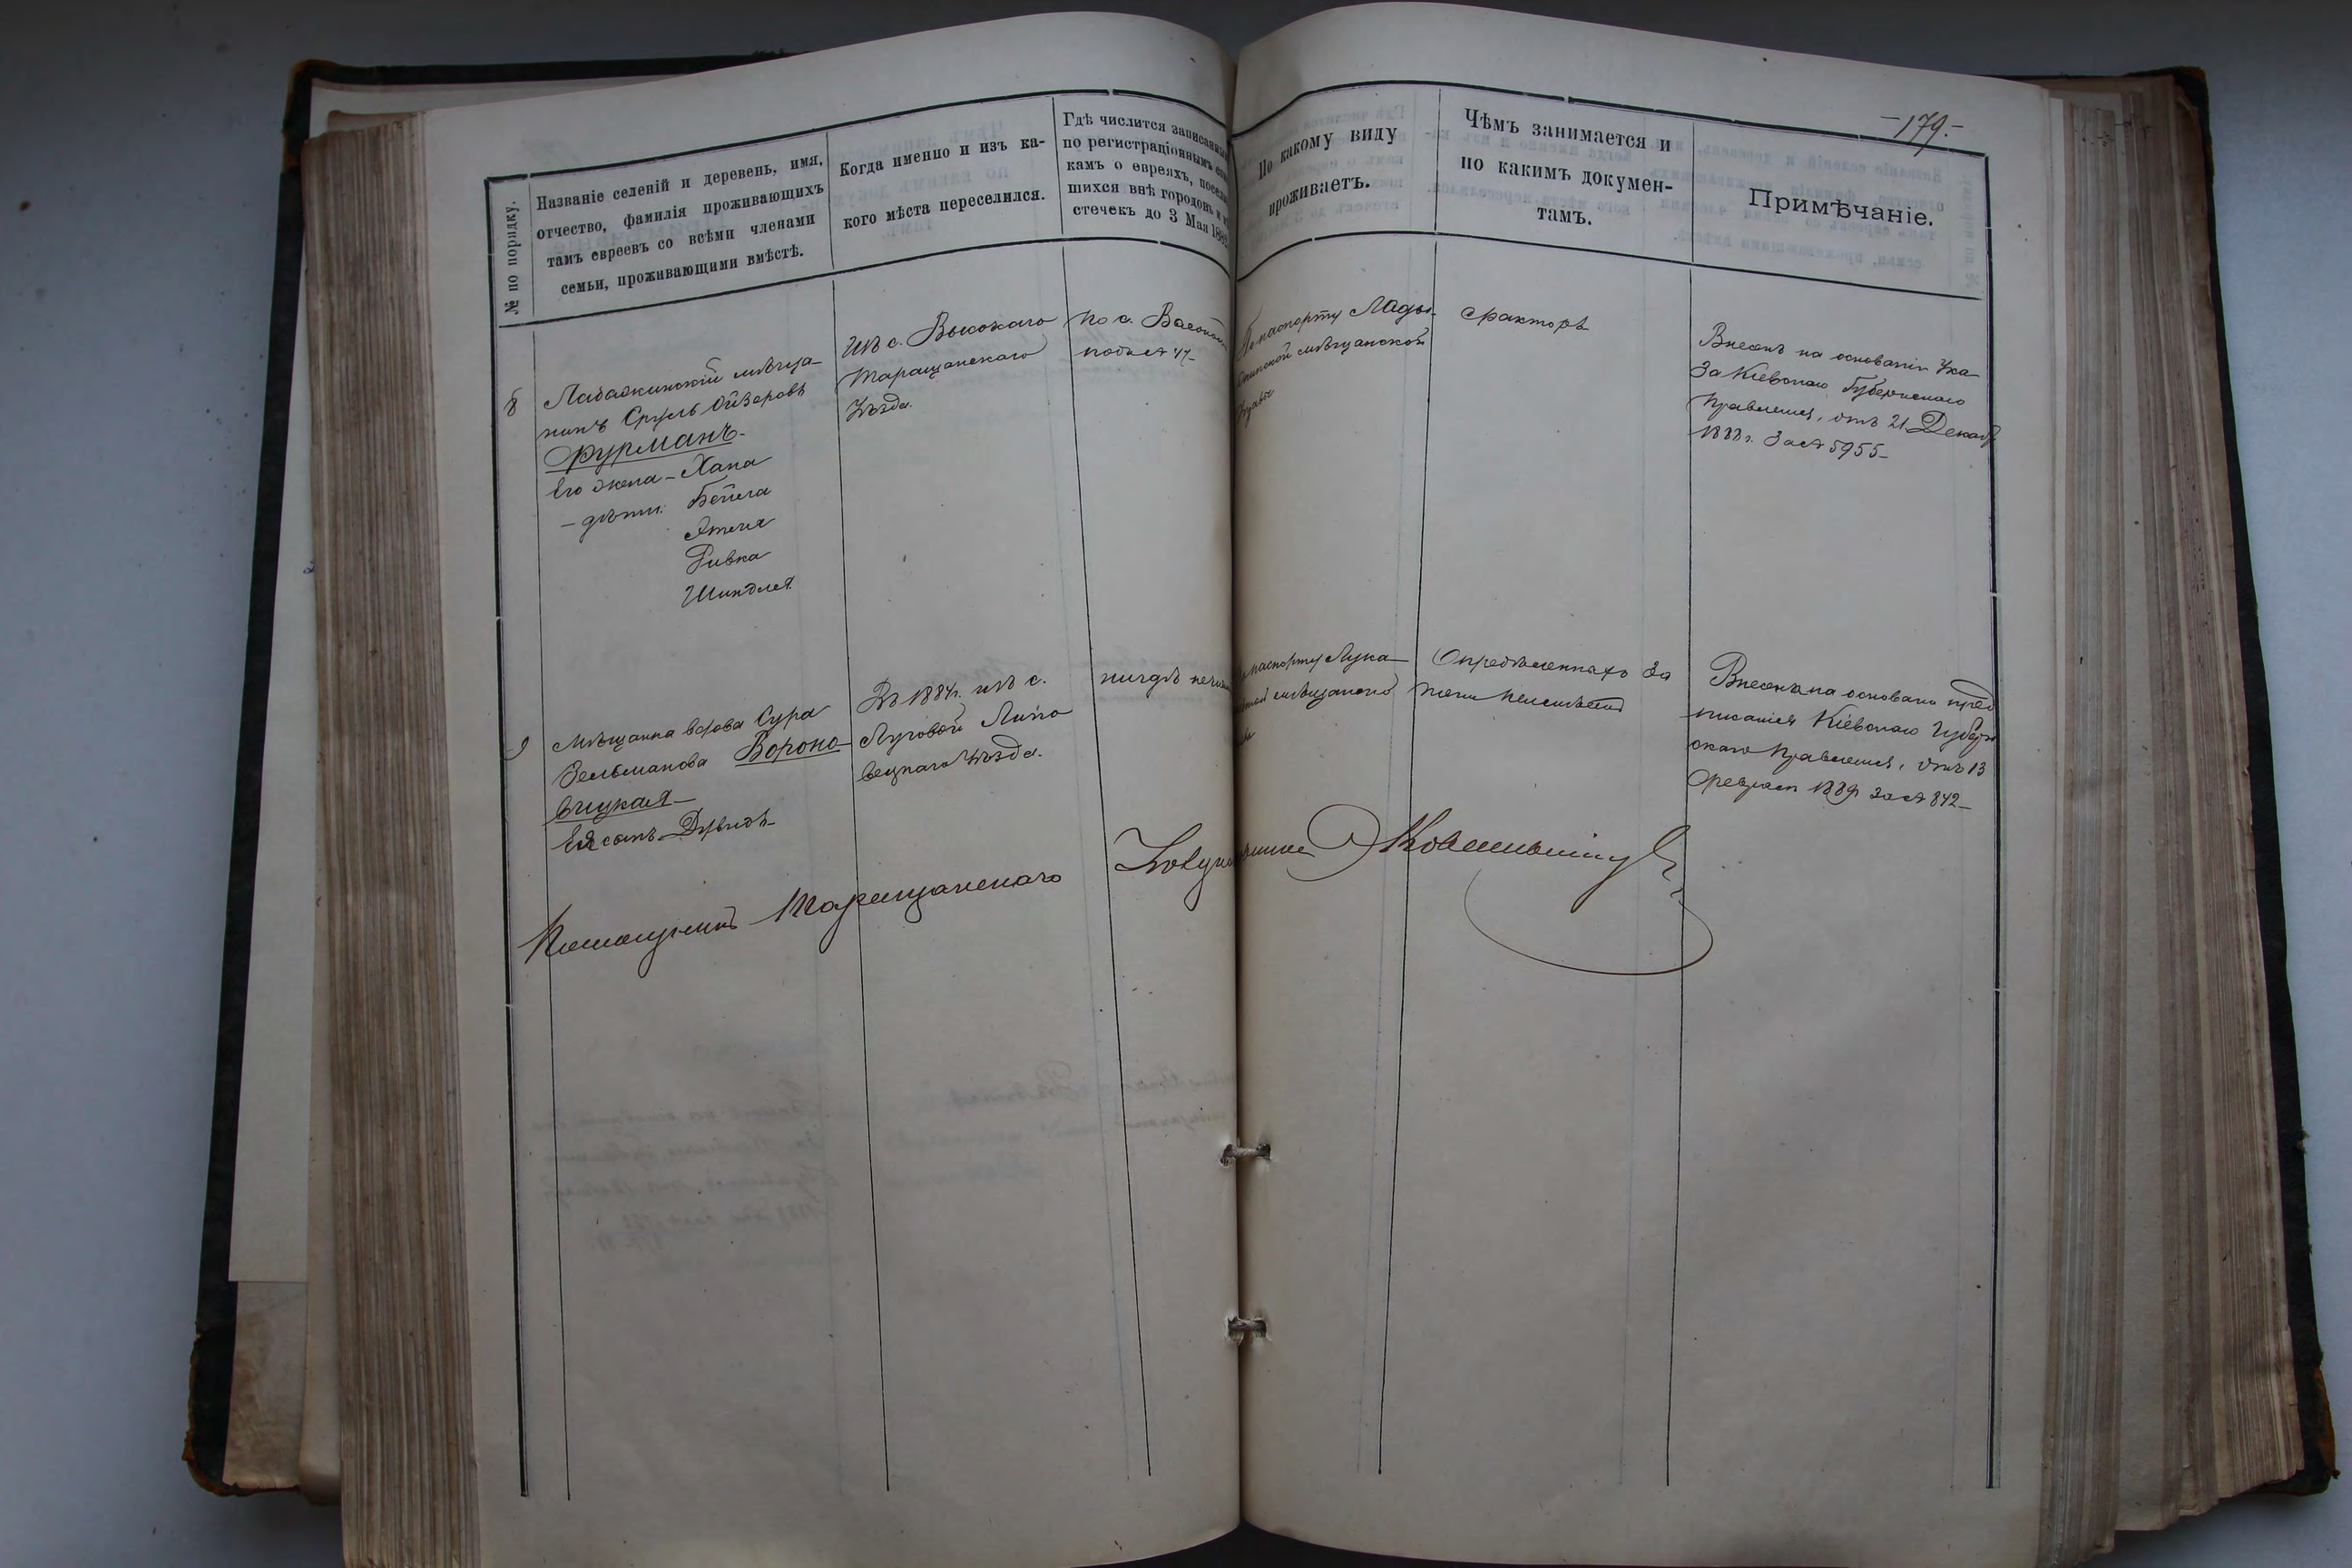 -179.-
№ по порядку.
Названіе селеній и деревень, имя,
отчество, фамилія проживающихъ
тамъ евреевъ со всѣми членами
семьи, проживающими вмѣстѣ.
Когда именно и изъ ка-
кого мѣста переселился.
Гдѣ числится записанны
по регистраціоннымъ
камъ о евреяхъ, посел
шихся внѣ городовъ и
стечекъ до 3 Мая 188
По какому виду
проживаетъ.
Чѣмъ занимается и
по какимъ докумен-
тамъ.
Примѣчаніе.
8
мѣща-
нинъ Сруль Ойзеровъ
Фурманъ-
Его жена - Хана
- дѣти: Бейла
Этля
Ривка
Шиндля
Изъ с. Высокаго
Таращанскаго
Уѣзда.
по с.
подъ № 47-
паспорту Лады-
жинской мѣщанской
Управы
факторъ
Внесенъ на основаніи Ука-
за Кіевскаго Губернскаго
Правленія, отъ 21 Декаб
1888 г. За № 5955-
9
Мѣщанка вдова Сура
Зельманова Вороно-
вицкая-
Ея сынъ Дувидъ-
Въ 1884 г. изъ с.
Луговой Липо
вецкаго Уѣзда.
нигдѣ
паспорту Лука-
мѣщанской
Опредѣленнаго за
нятія неимѣетъ
Внесена на основаніи пред
писанія Кіевскаго Губерн
скаго Правленія, отъ 13
Февраля 1889 г. за № 842-
Помощникъ Таращанскаго